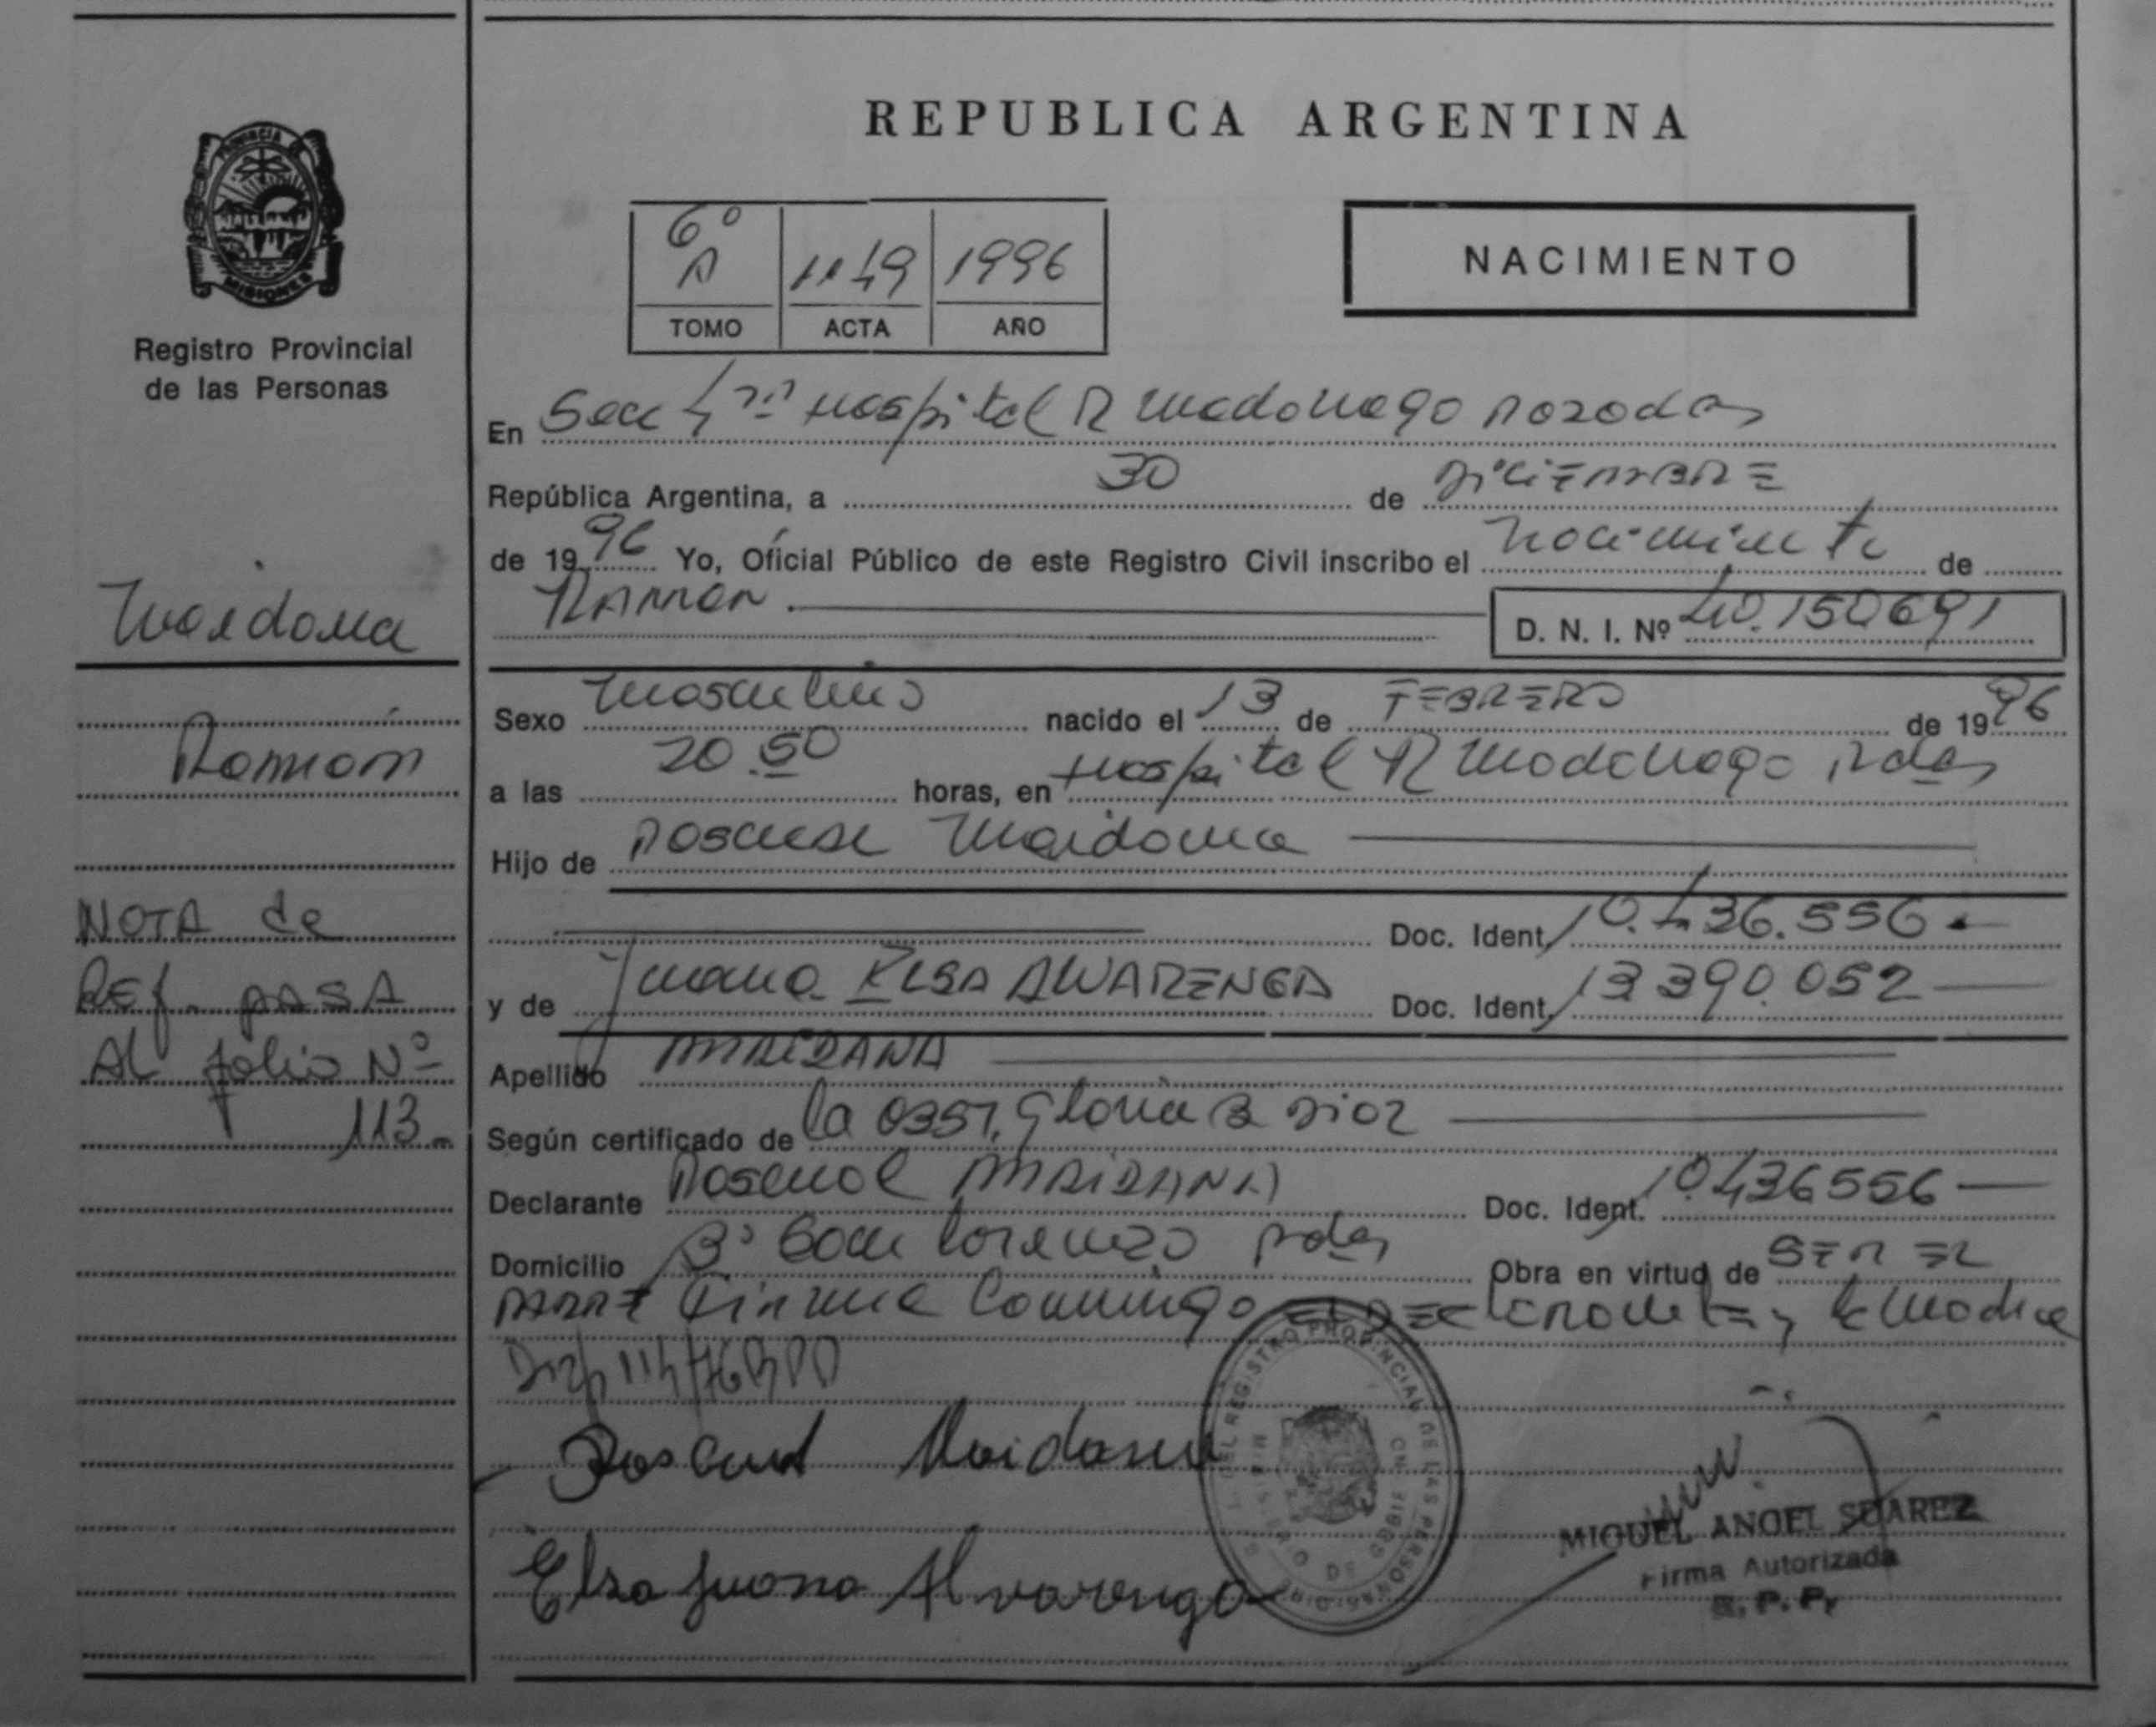 REPUBLICA ARGENTINA
PROVINCIA DE
MISIONES
Registro Provincial
de las Personas
6º
A
1149
1996
TOMO
ACTA
AÑO
NACIMIENTO
En Secc Hospital R Madariaga Posadas
República Argentina, a 30 de DICIEMBRE
de 1996 Yo, Oficial Público de este Registro Civil inscribo el nacimiento de
RAMON
D. N. I. Nº 40.150691
Maidana
Ramon
Sexo masculino nacido el 13 de FEBRERO de 1996
a las 20.50 horas, en Hospital R Madariaga Pdas
Hijo de Maidana
Doc. Ident. 10.436.556.
y de Juana ELSA ALVARENGA Doc. Ident. 13390.052
Apellido MAIDANA
Según certificado de la Obst. Gloria B Dioz
Declarante MAIDANA Doc. Ident. 10.436556
Domicilio Bº San Lorenzo Pdas Obra en virtud de SER EL
PADRE Firma Conmigo EL DECLARANTE y la Madre
NOTA de
REf. PASA
Al folio Nº
113
Maidana
Elsa Juana Alvarenga
REGISTRO PROVINCIAL DE LAS PERSONAS
MIGUEL ANGEL SUAREZ
Firma Autorizada
R. P. P.